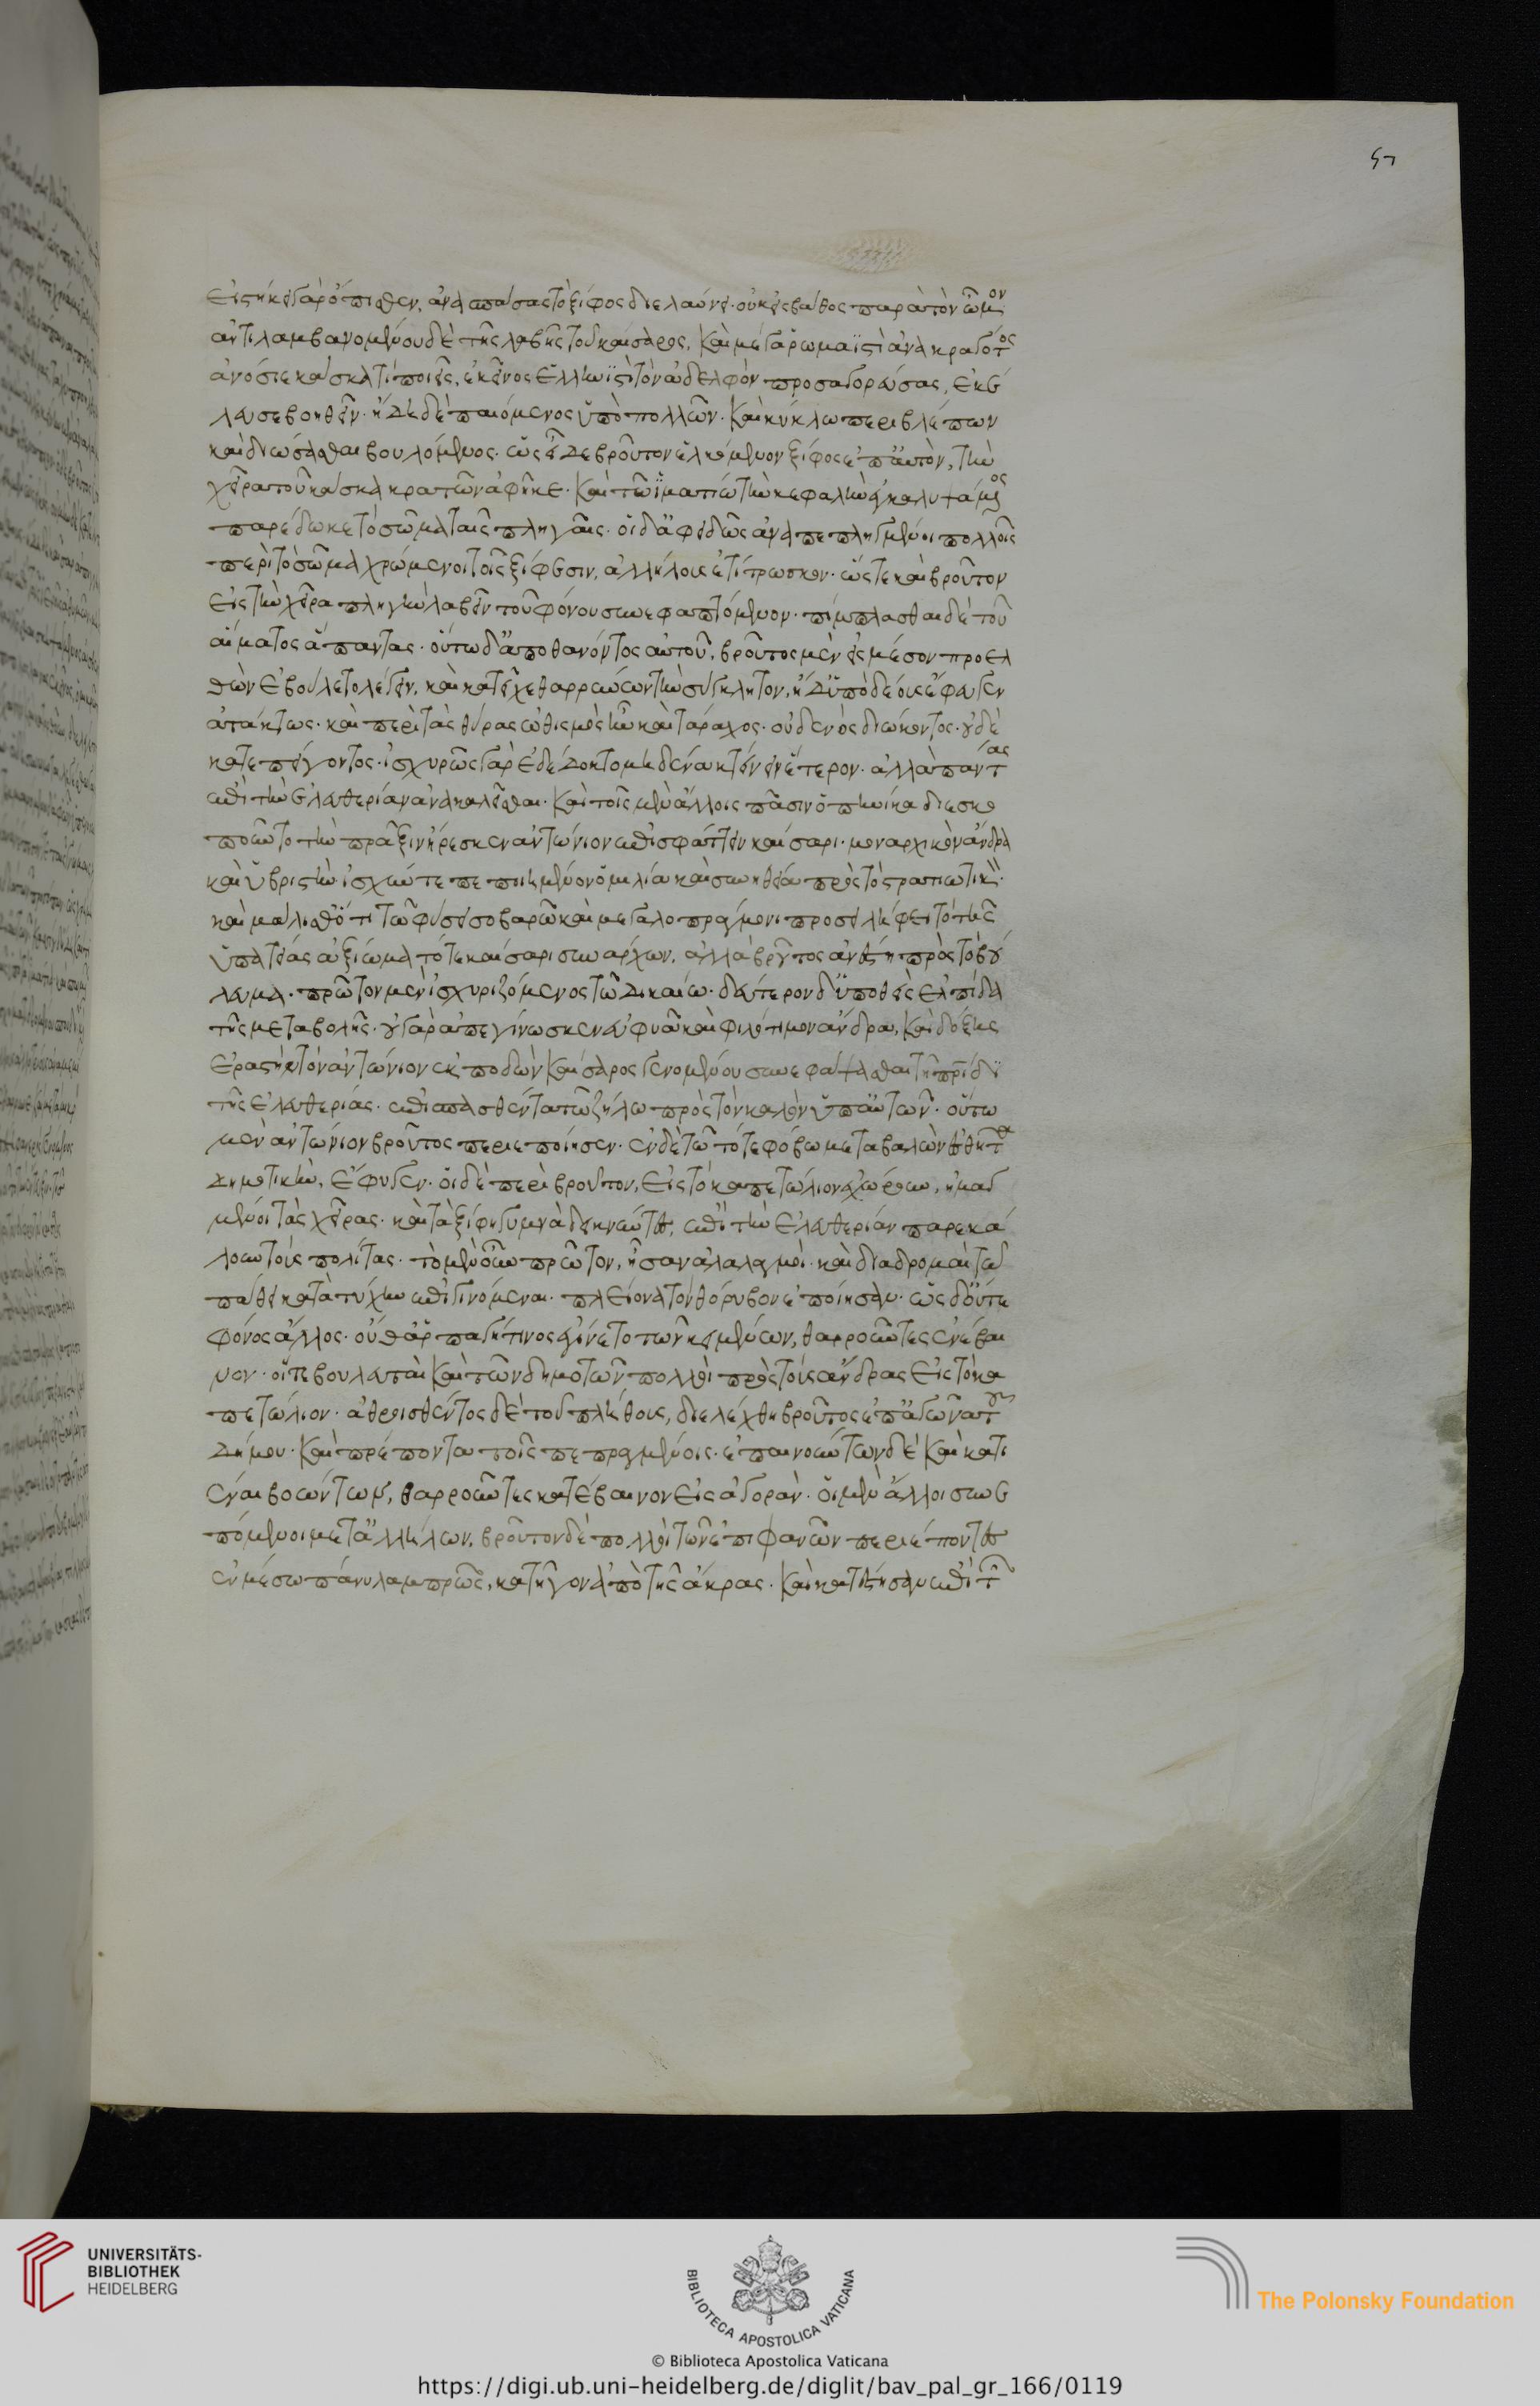 57
εἱστήκει γὰρ ὄπισθεν, ἀνασπάσας τὸ ξίφος διελαύνει· οὐκ εἰς βάθος παρὰ τὸν ὦμον
ἀντιλαμβανομένου δὲ τῆς λαβῆς τοῦ καίσαρος, καὶ μέγα ῥωμαϊστὶ ἀνακραγόντος
ἀνόσιε κάσκα τί ποιεῖς, ἐκεῖνος ἑλληνιστὶ τὸν ἀδελφὸν προσαγορεύσας, ἐκέ
λευσε βοηθεῖν· ἤδη δὲ παιόμενος ὑπὸ πολλῶν· καὶ κύκλω περιβλέπων
καὶ διώσασθαι βουλόμενος· ὡς εἶδε βροῦτον ἑλκόμενον ξίφος ἐπ' αὐτὸν, τὴν
χεῖρα τοῦ κάσκα κρατῶν ἀφῆκε· καὶ τῶ ἱματίω τὴν κεφαλὴν ἐγκαλυψάμενος
παρέδωκε τὸ σῶμα ταῖς πληγαῖς· οἱ δ' ἀφειδῶς ἀναπεπλεγμένοι πολλοῖς
περὶ τὸ σῶμα χρώμενοι τοῖς ξίφεσιν, ἀλλήλους ἐτίτρωσκον· ὥστε καὶ βροῦτον
εἰς τὴν χεῖρα πληγὴν λαβεῖν τοῦ φόνου συνεφαπτόμενον· πίμπλασθαι δὲ τοῦ
αἵματος ἅπαντας· οὕτω δ' ἀποθανόντος αὐτοῦ, βροῦτος μὲν εἰς μέσον προελ
θὼν ἐβούλετο λέγειν, καὶ κατεῖχε θαρρύνων τὴν σύγκλητον, ἡ δ' ὑπὸ δέους ἔφευγεν
ἀτάκτως· καὶ περὶ τὰς θύρας ὠθισμὸς ἦν καὶ τάραχος· οὐδενὸς διώκοντος· οὐδὲ
κατεπείγοντος· ἰσχυρῶς γὰρ ἐδέδοκτο μηδένα κτείνειν ἕτερον· ἀλλὰ πάντας
ἐπὶ τὴν ἐλευθερίαν ἀνακαλεῖσθαι· καὶ τοῖς μὲν ἄλλοις πᾶσιν ὁπηνίκα διεσκο
ποῦντο τὴν πρᾶξιν ἤρεσκεν ἀντώνιον ἐπισφάττειν καίσαρι· μοναρχικὸν ἄνδρα
καὶ ὑβριστὴν ἰσχύν τε πεποιημένον ὁμιλία καὶ συνηθεία πρὸς τὸ στρατιωτικὸν·
καὶ μάλισθ' ὅτι τῶ φύσει σοβαρῶ καὶ μεγαλοπράγμονι προσειλήφει τὸ τῆς
ὑπατείας ἀξίωμα τότε καίσαρι συνάρχων, ἀλλὰ βροῦτος ἀνέστη πρὸς τὸ βού
λευμα· πρῶτον μὲν ἰσχυριζόμενος τῶ δικαίω· δεύτερον δ' ὑποθεὶς ἐλπίδα
τῆς μεταβολῆς· οὐ γὰρ ἀπεγίνωσκεν εὐφυᾶ καὶ φιλότιμον ἄνδρα, καὶ δόξης
ἐραστὴν τὸν ἀντώνιον ἐκποδὼν καίσαρος γενομένου συνεφάψασθαι τῆ πατρίδι
τῆς ἐλευθερίας· ἐπισπασθέντα τῶ ζήλω πρὸς τὸν καλὸν ὑπ' αὐτῶν· οὕτω
μὲν ἀντώνιον βροῦτος περιεποίησεν· ἐν δὲ τῶ τότε φόβω μεταβαλὼν ἐσθῆτα
δημοτικὴν, ἔφυγεν· οἱ δὲ περὶ βροῦτον, εἰς τὸ καπετώλιον ἐχώρουν, ἡμαγ
μένοι τὰς χεῖρας· καὶ τὰ ξίφη γυμνὰ δεικνύντες, ἐπὶ τὴν ἐλευθερίαν παρεκά
λουν τοὺς πολίτας· τὸ μὲν οὖν πρῶτον, ἦσαν ἀλαλαγμοὶ· καὶ διαδρομαὶ τῶ
πάθει κατὰ τύχην ἐπιγινόμεναι· πλείονα τὸν θόρυβον ἐποίησαν· ὡς δ' οὔτε
φόνος ἄλλος· οὔθ' ἁρπαγή τινος ἐγίνετο τῶν κειμένων, θαρροῦντες ἀνέβαι
νον· οἵ τε βουλευταὶ καὶ τῶν δημοτῶν πολλοὶ πρὸς τοὺς ἄνδρας εἰς τὸ κα
πετώλιον· ἀθροισθέντος δὲ τοῦ πλήθους, διελέχθη βροῦτος ἐπαγωγὰ τοῦ
δήμου· καὶ πρέποντα τοῖς πεπραγμένοις· ἐπαινούντων δὲ καὶ κατι
έναι βοώντων, θαρροῦντες κατέβαινον εἰς ἀγορὰν· οἱ μὲν ἄλλοι συνε
πόμενοι μετ' ἀλλήλων, βροῦτον δὲ πολλοὶ τῶν ἐπιφανῶν περιέποντες
ἐν μέσω πάνυ λαμπρῶς, κατῆγον ἀπὸ τῆς ἄκρας· καὶ κατέστησαν ἐπὶ τῶν
UNIVERSITÄTS-
BIBLIOTHEK
HEIDELBERG
BIBLIOTECA APOSTOLICA VATICANA
The Polonsky Foundation
© Biblioteca Apostolica Vaticana
https://digi.ub.uni-heidelberg.de/diglit/bav_pal_gr_166/0119